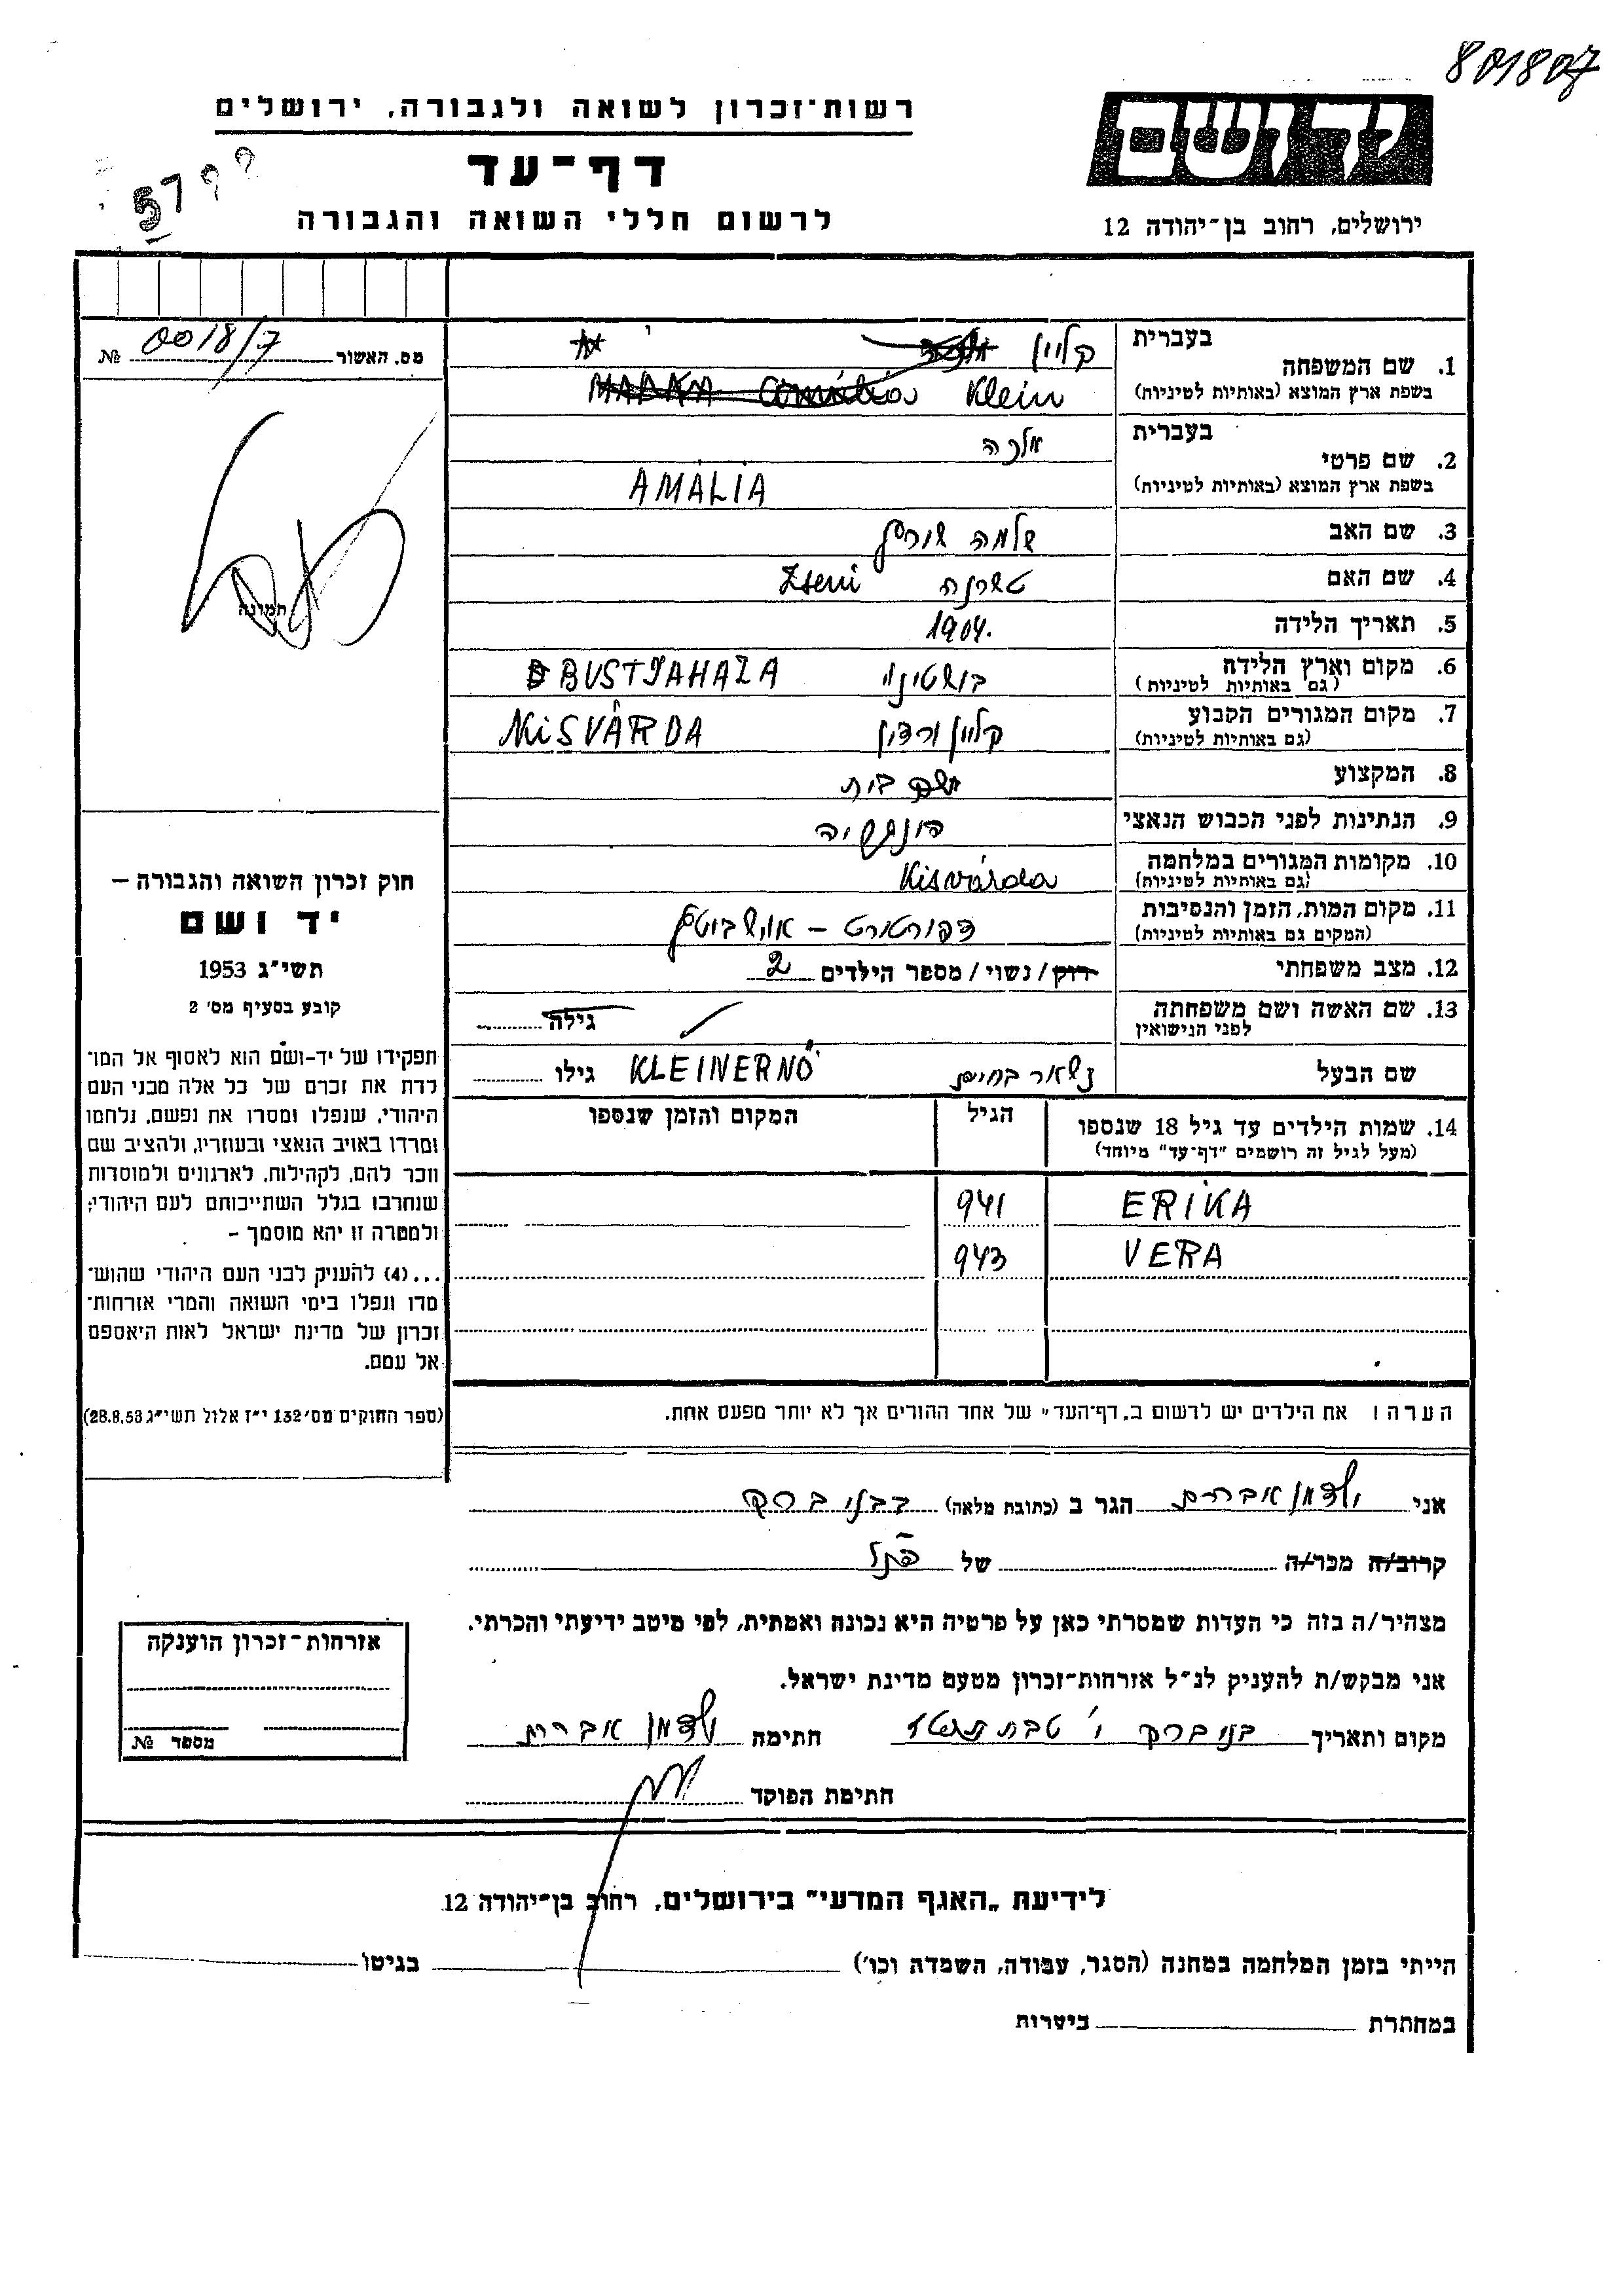 801807
ידושם
ירושלים, רחוב בן־יהודה 12
רשות־זכרון לשואה ולגבורה, ירושלים
דף־עד
לרשום חללי השואה והגבורה
57
מס. האשור 0018/7 №
בעברית
1. שם המשפחה קליין
בשפת ארץ המוצא (באותיות לטיניות) Klein
בעברית
2. שם פרטי
בשפת ארץ המוצא (באותיות לטיניות) AMÁLIA
3. שם האב שלמה
4. שם האם Zseni
5. תאריך הלידה 1904.
6. מקום וארץ הלידה BUSTYAHAZA
(גם באותיות לטיניות)
7. מקום המגורים הקבוע קליין ורדין KISVÁRDA
(גם באותיות לטיניות)
8. המקצוע בית
9. הנתינות לפני הכבוש הנאצי
10. מקומות המגורים במלחמה Kisvárda
(גם באותיות לטיניות)
11. מקום המות, הזמן והנסיבות דפורטרט – אוישביטץ
(המקום גם באותיות לטיניות)
12. מצב משפחתי רוק / נשוי / מספר הילדים 2
13. שם האשה ושם משפחתה גילה
לפני הנישואין
שם הבעל נשאר בחיים KLEINERNŐ גילו
14. שמות הילדים עד גיל 18 שנספו הגיל המקום והזמן שנספו
(מעל לגיל זה רושמים "דף־עד" מיוחד)
ERIKA 941
VERA 943
הערה ! את הילדים יש לרשום ב„דף־העד" של אחד ההורים אך לא יותר מפעם אחת.
תמונה
חוק זכרון השואה והגבורה –
יד ושם
תשי"ג 1953
קובע בסעיף מס' 2
תפקידו של יד-ושם הוא לאסוף אל המו־
לדת את זכרם של כל אלה מבני העם
היהודי, שנפלו ומסרו את נפשם, נלחמו
ומרדו באויב הנאצי ובעוזריו, ולהציב שם
וזכר להם, לקהילות, לארגונים ולמוסדות
שנחרבו בגלל השתייכותם לעם היהודי;
ולמטרה זו יהא מוסמך –
...(4) להעניק לבני העם היהודי שהוש־
מדו ונפלו בימי השואה והמרי אזרחות־
זכרון של מדינת ישראל לאות היאספם
אל עמם.
(ספר החוקים מס' 132 י"ז אלול תשי"ג 28.8.53)
אני אברהם הגר ב (כתובת מלאה) בבני ברק
קרוב/ה מכר/ה של
מצהיר/ה בזה כי העדות שמסרתי כאן על פרטיה היא נכונה ואמתית, לפי מיטב ידיעתי והכרתי.
אני מבקש/ת להעניק לנ"ל אזרחות־זכרון מטעם מדינת ישראל.
מקום ותאריך בני ברק י' טבת חתימה אברהם
חתימת הפוקד
אזרחות־זכרון הוענקה
מספר №
לידיעת „האגף המדעי" בירושלים, רחוב בן־יהודה 12
הייתי בזמן המלחמה במחנה (הסגר, עבודה, השמדה וכו') בגיטו
במחתרת ביערות